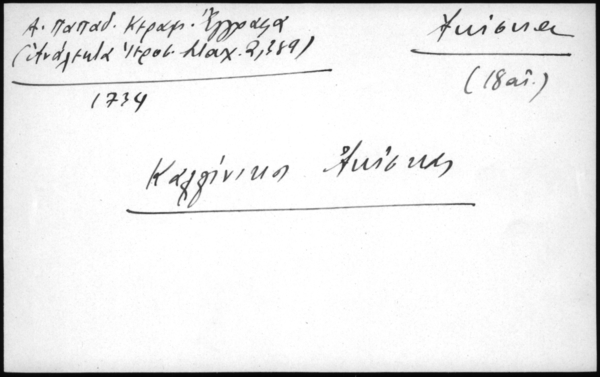 Α. Παπαδ. Κεραμ. Ἔγγραφα
(Ἀνάλεκτα Ἱεροσ. Σταχ. 2, 389)
1734
Ἀκίσκα
(18 αἰ.)
Καλλίνικος Ἀκίσκας